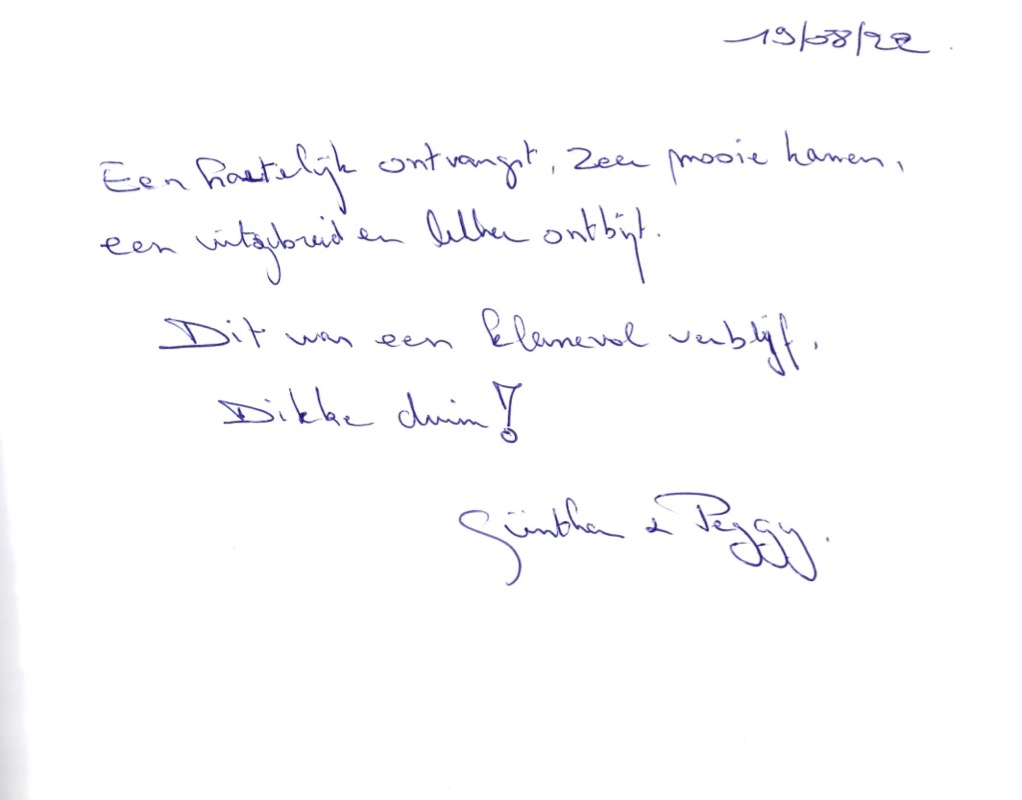 19/08/22
Een hartelijk ontvangst, zeer mooie kamer,
een uitgebreid en lekker ontbijt.
Dit was een klassevol verblijf.
Dikke duim!
Günther & Peggy.